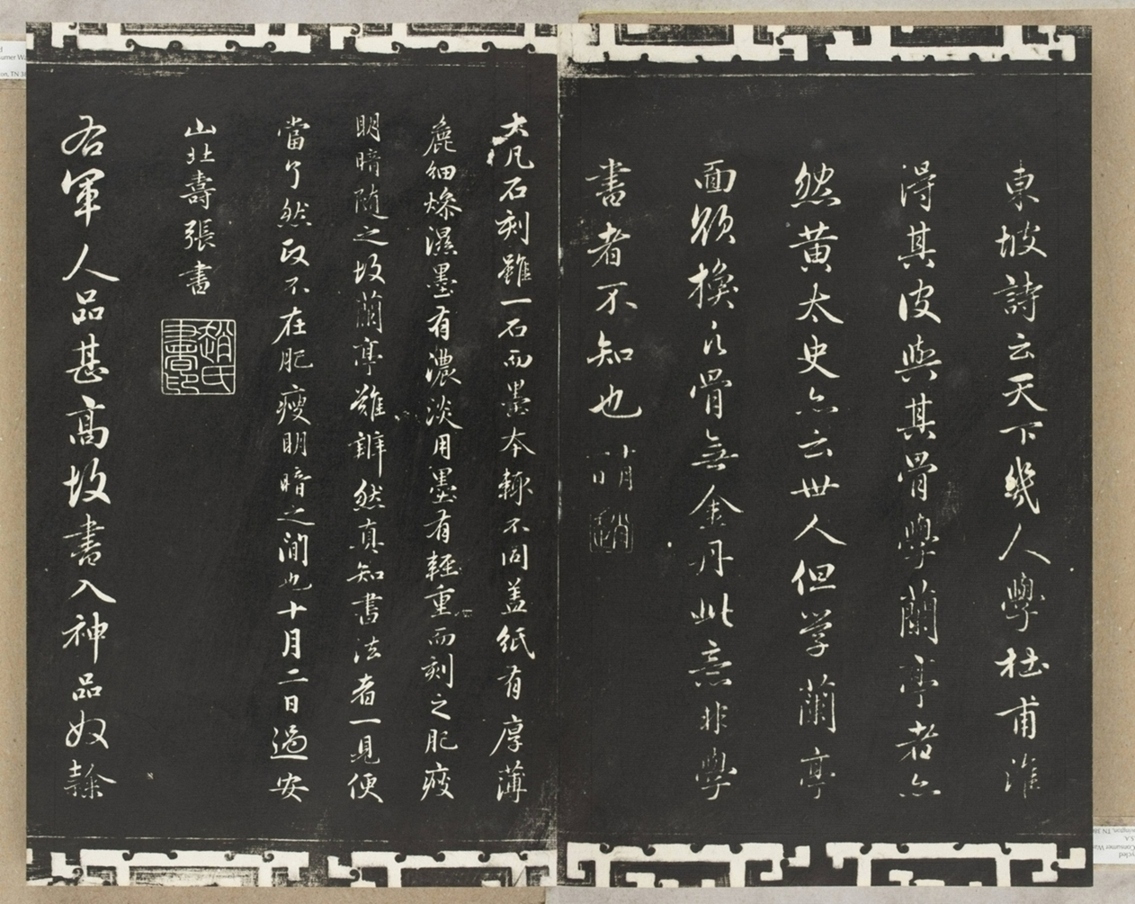 東坡詩云天下幾人學杜甫誰
得其皮與其骨學蘭亭者亦
然黃太史亦云世人但學蘭亭
面欲換凡骨無金丹此意非學
書者不知也
大凡石刻雖一石而墨本輙不同盖紙有厚薄
麁細燥濕墨有濃淡用墨有輕重而刻之肥瘦
明暗隨之故蘭亭難辨然真知書法者一見便
當了然政不在肥瘦明暗之間也十月二日過安
山北壽張書
趙氏書印
右軍人品甚高故書入神品奴隸